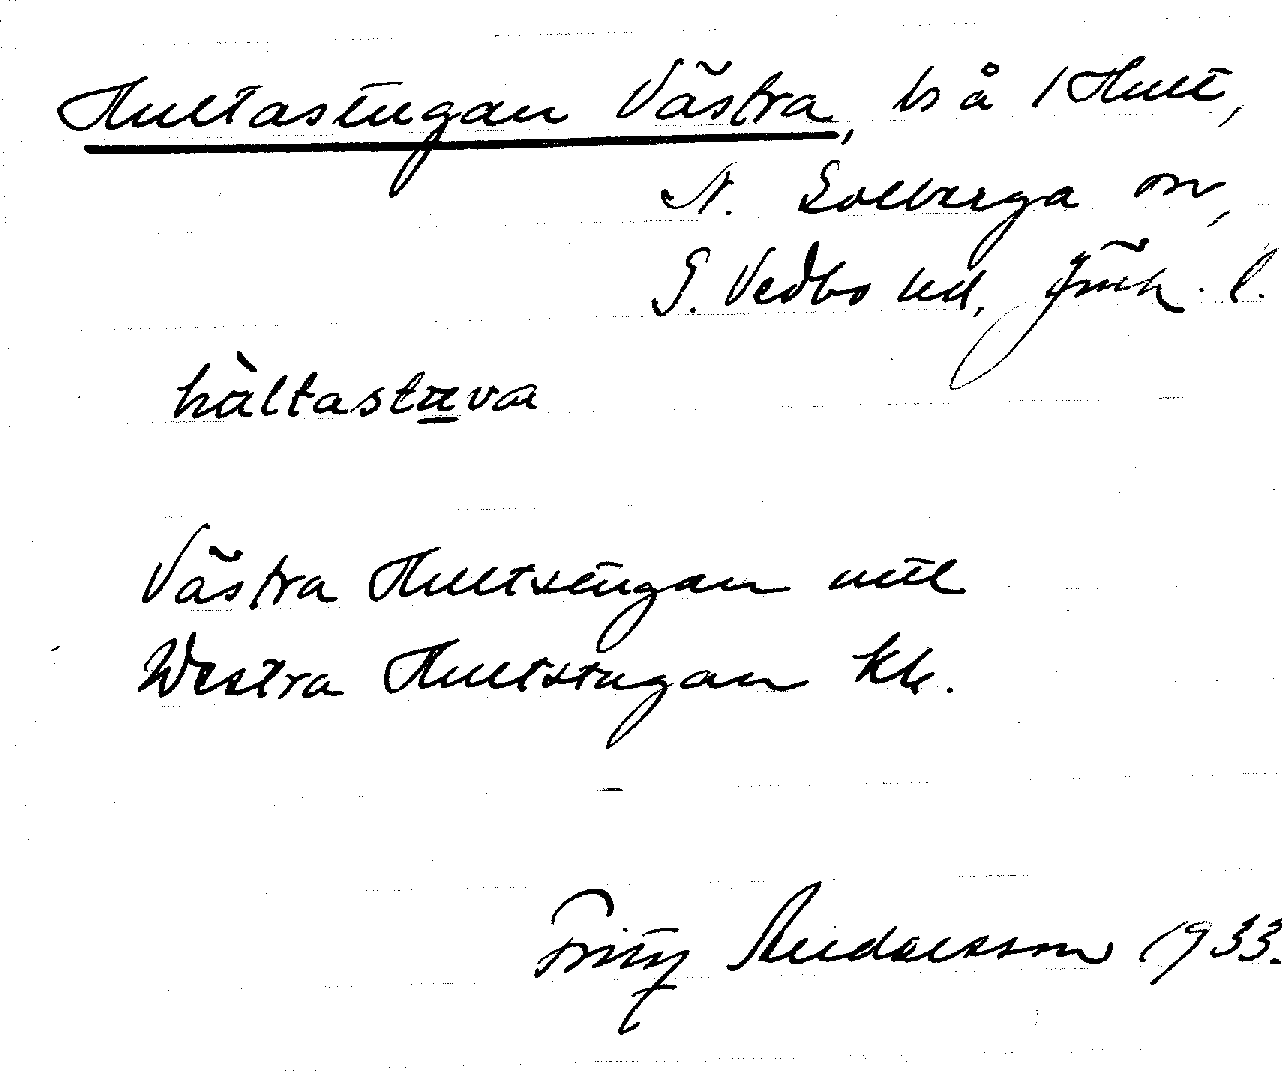 Hultastugan Västra, ls å 1 Hult,
N. Solberga sn,
S. Vedbo hd, Jönk. l.
hàltastuva
Västra Hultstugan
Westra Hultstugan kk.
Fritz 1933.